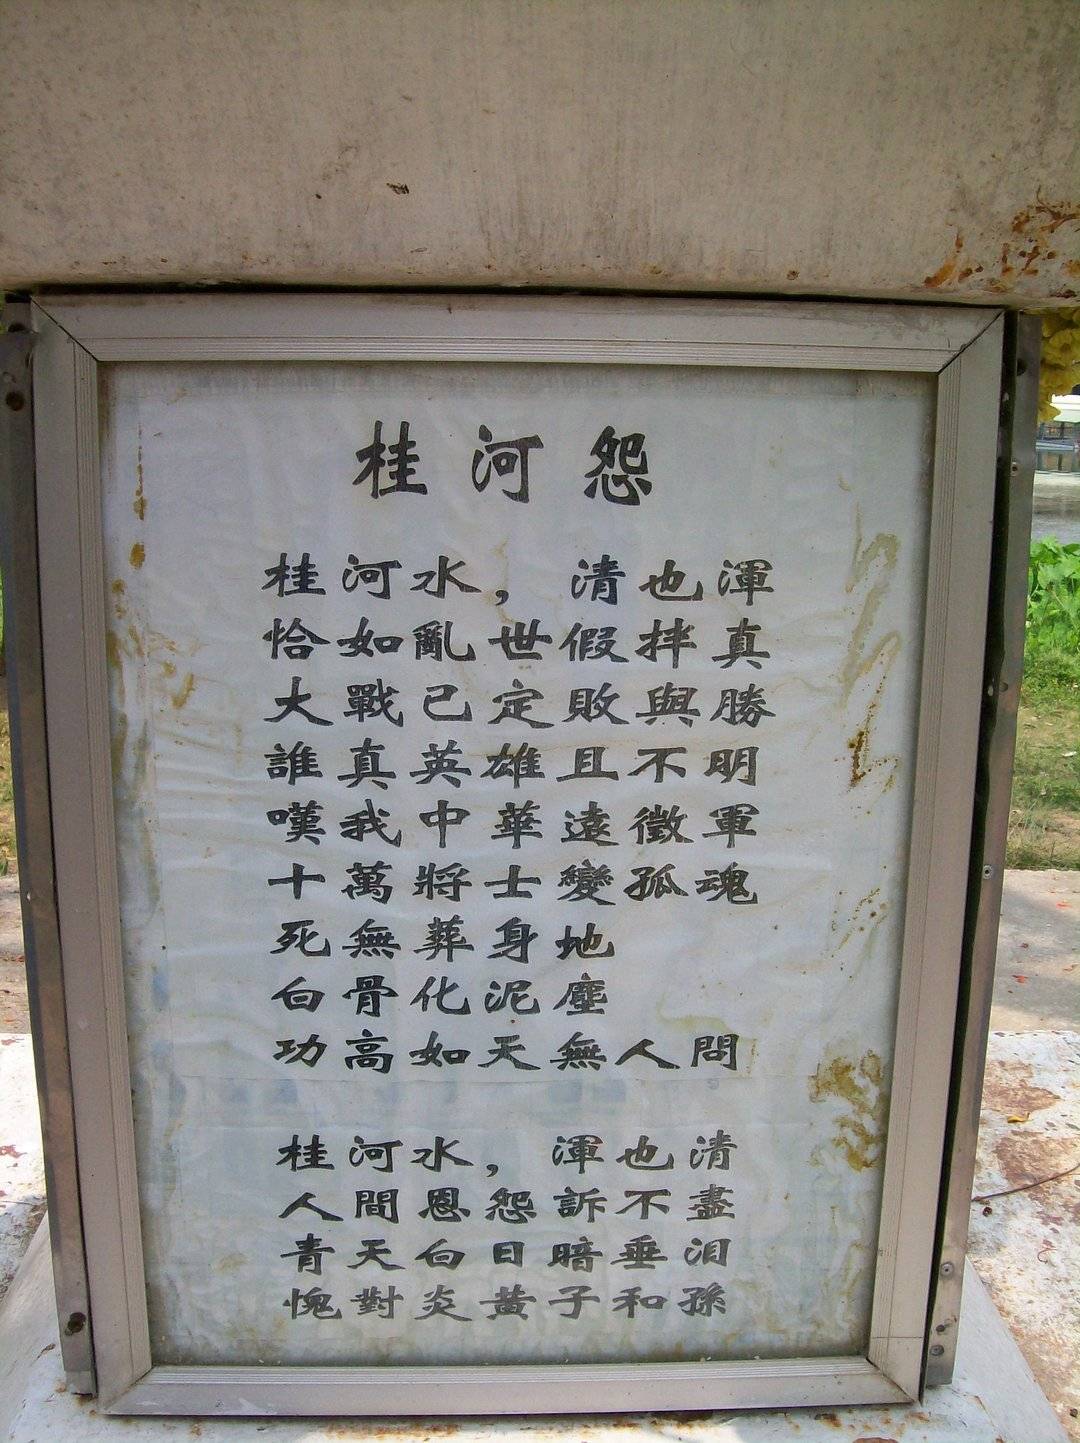 桂河怨
桂河水，清也渾
恰如亂世假拌真
大戰已定敗與勝
誰真英雄且不明
嘆我中華遠徵軍
十萬將士變孤魂
死無葬身地
白骨化泥塵
功高如天無人問
桂河水，渾也清
人間恩怨訴不盡
青天白日暗垂泪
愧對炎黃子和孫